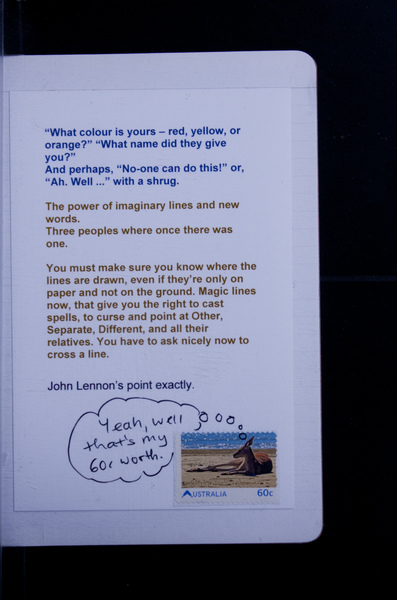 “What colour is yours – red, yellow, or
orange?” “What name did they give
you?”
And perhaps, “No-one can do this!” or,
“Ah. Well ...” with a shrug.
The power of imaginary lines and new
words.
Three peoples where once there was
one.
You must make sure you know where the
lines are drawn, even if they’re only on
paper and not on the ground. Magic lines
now, that give you the right to cast
spells, to curse and point at Other,
Separate, Different, and all their
relatives. You have to ask nicely now to
cross a line.
John Lennon’s point exactly.
Yeah, well
that's my
60c worth.
AUSTRALIA 60c